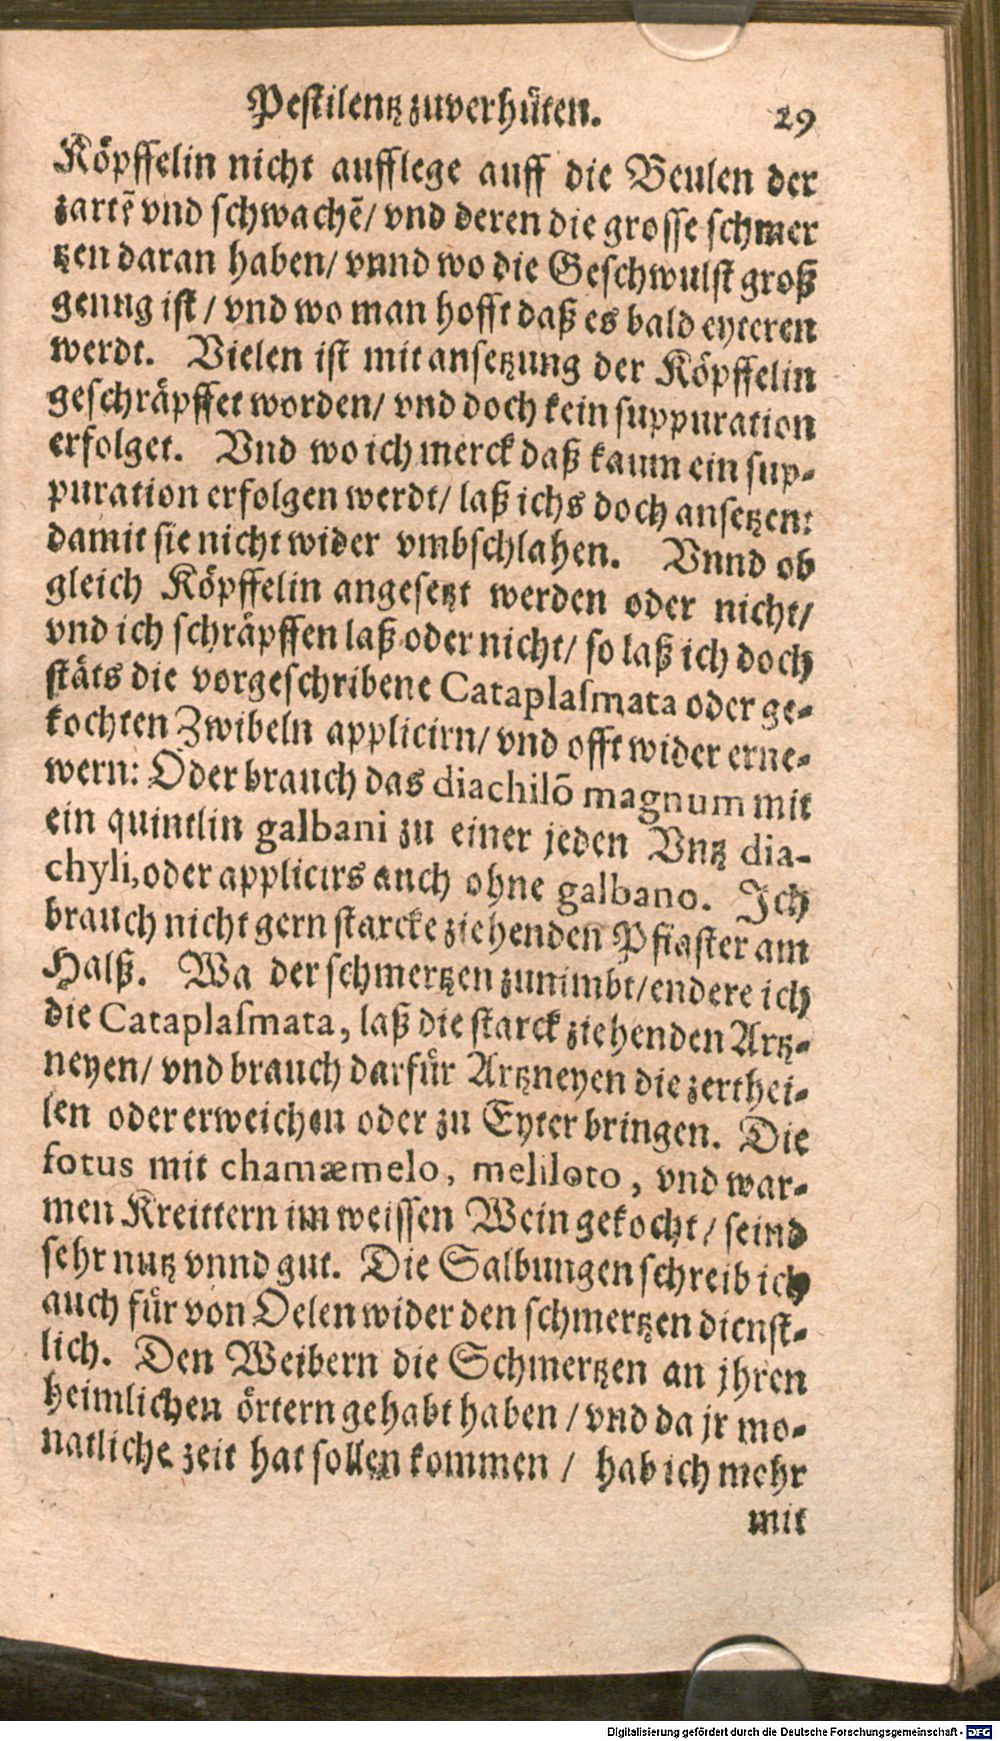 Pestilentz zuverhüten. 29
Köpffelin nicht aufflege auff die Beulen der
zartē vnd schwachē/ vnd deren die grosse schmer
tzen daran haben/ vnnd wo die Geschwulst groß
genug ist/ vnd wo man hofft daß es bald eyteren
werdt. Vielen ist mit ansetzung der Köpffelin
geschräpffet worden/ vnd doch kein suppuration
erfolget. Vnd wo ich merck daß kaum ein sup-
puration erfolgen werdt/ laß ichs doch ansetzen:
damit sie nicht wider vmbschlahen. Vnnd ob
gleich Köpffelin angesetzt werden oder nicht/
vnd ich schräpffen laß oder nicht/ so laß ich doch
stäts die vorgeschribene Cataplasmata oder ge-
kochten Zwibeln applicirn/ vnd offt wider erne-
wern: Oder brauch das diachilō magnum mit
ein quintlin galbani zu einer jeden Vntz dia-
chyli, oder applicirs auch ohne galbano. Ich
brauch nicht gern starcke ziehenden Pflaster am
Halß. Wa der schmertzen zunimbt/ endere ich
die Cataplasmata, laß die starck ziehenden Artz-
neyen/ vnd brauch darfür Artzneyen die zerthei-
len oder erweichen oder zu Eyter bringen. Die
fotus mit chamæmelo, meliloto, vnd war-
men Kreittern im weissen Wein gekocht/ seind
sehr nutz vnnd gut. Die Salbungen schreib ich
auch für von Oelen wider den schmertzen dienst-
lich. Den Weibern die Schmertzen an jhren
heimlichen örtern gehabt haben/ vnd da jr mo-
natliche zeit hat sollen kommen/ hab ich mehr
mit
Digitalisierung gefördert durch die Deutsche Forschungsgemeinschaft - DFG